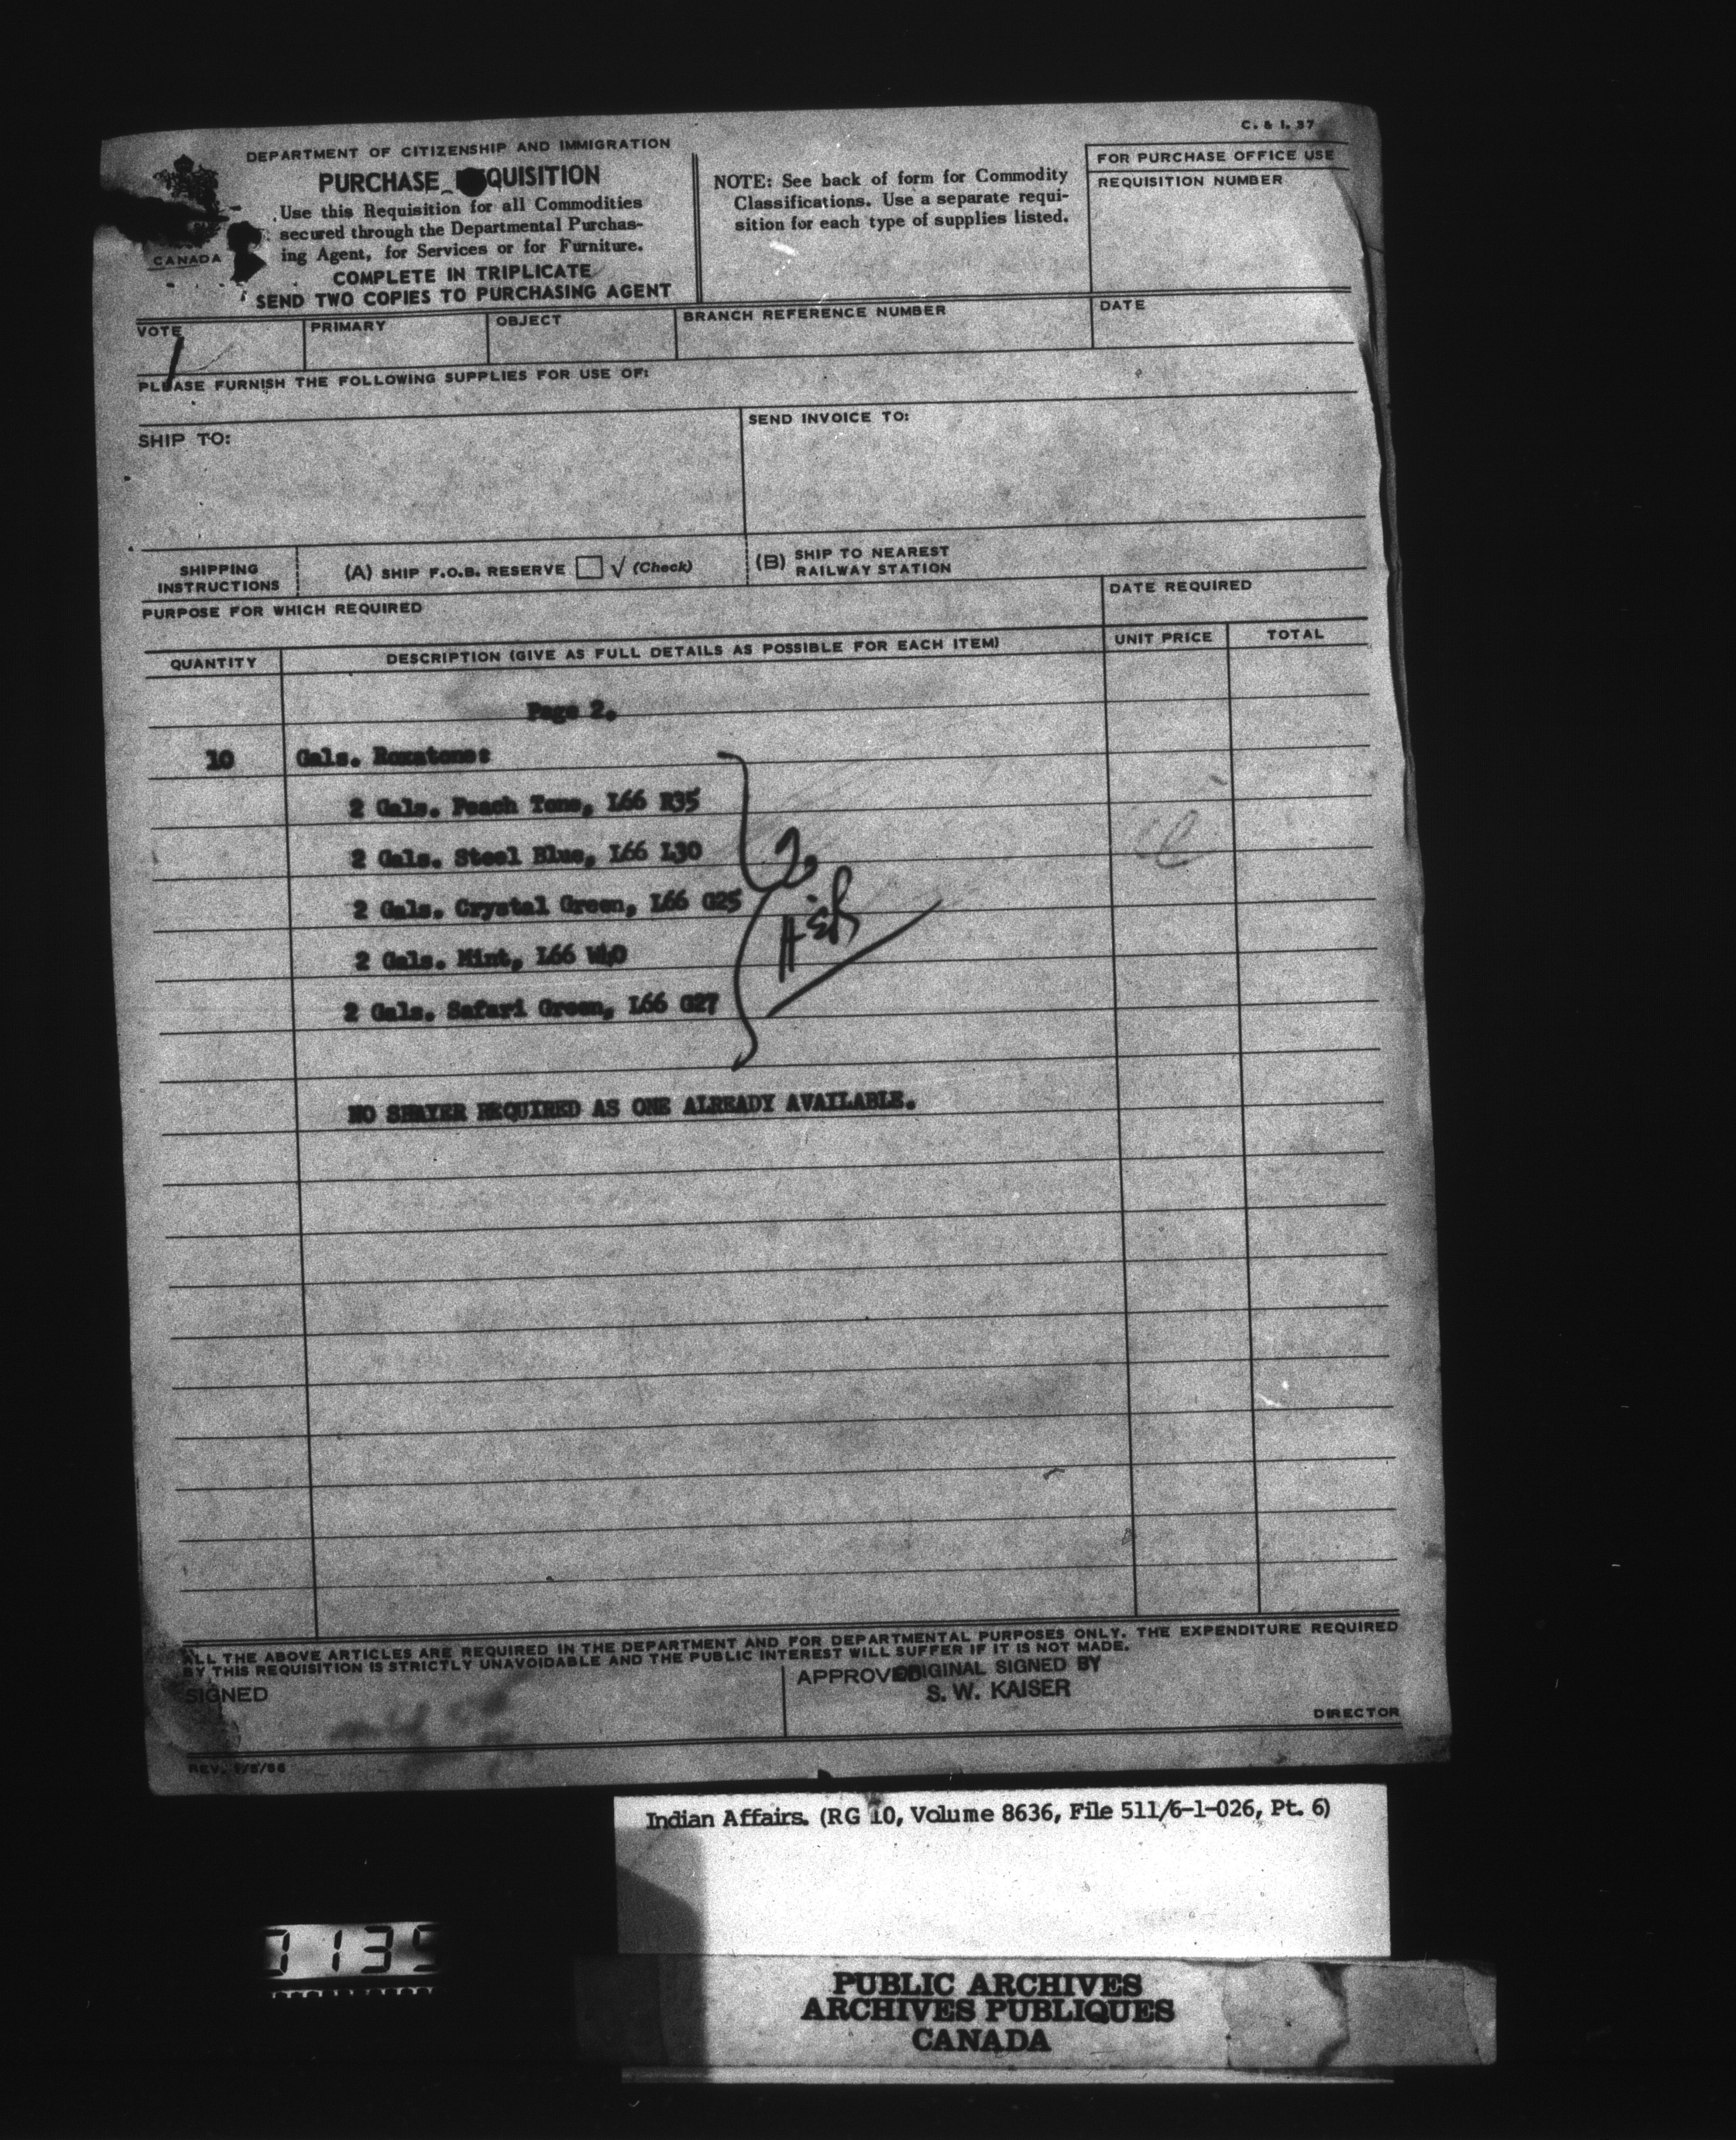 C. & I. 37
DEPARTMENT OF CITIZENSHIP AND IMMIGRATION
PURCHASE QUISITION
Use this Requisition for all Commodities
secured through the Departmental Purchas-
ing Agent, for Services or for Furniture.
COMPLETE IN TRIPLICATE
SEND TWO COPIES TO PURCHASING AGENT
CANADA
NOTE: See back of form for Commodity
Classifications. Use a separate requi-
sition for each type of supplies listed.
FOR PURCHASE OFFICE USE
REQUISITION NUMBER
VOTE PRIMARY OBJECT BRANCH REFERENCE NUMBER DATE
PLEASE FURNISH THE FOLLOWING SUPPLIES FOR USE OF:
SHIP TO: SEND INVOICE TO:
SHIPPING
INSTRUCTIONS
(A) SHIP F.O.B. RESERVE √ (Check)
(B) SHIP TO NEAREST
RAILWAY STATION
PURPOSE FOR WHICH REQUIRED DATE REQUIRED
QUANTITY DESCRIPTION (GIVE AS FULL DETAILS AS POSSIBLE FOR EACH ITEM) UNIT PRICE TOTAL
Page 2.
10 Gals. Roxatone:
2 Gals. Peach Tone, L66 R35
2 Gals. Steel Blue, L66 L30
2 Gals. Crystal Green, L66 G25
2 Gals. Mint, L66 W40
2 Gals. Safari Green, L66 G27
NO SHAYER REQUIRED AS ONE ALREADY AVAILABLE.
ALL THE ABOVE ARTICLES ARE REQUIRED IN THE DEPARTMENT AND FOR DEPARTMENTAL PURPOSES ONLY. THE EXPENDITURE REQUIRED
BY THIS REQUISITION IS STRICTLY UNAVOIDABLE AND THE PUBLIC INTEREST WILL SUFFER IF IT IS NOT MADE.
SIGNED
APPROVED ORIGINAL SIGNED BY
S. W. KAISER
DIRECTOR
Indian Affairs. (RG 10, Volume 8636, File 511/6-1-026, Pt. 6)
PUBLIC ARCHIVES
ARCHIVES PUBLIQUES
CANADA